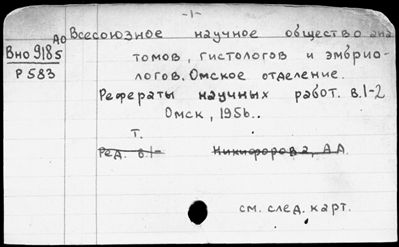 -1-
АО Всесоюзное научное общество ана
Вно 9185 томов, гистологов и эмбрио-
Р 583 логов. Омское отделение.
Рефераты научных работ. в.1-2
Омск, 1956..
т.
Ред. в.1- Никифорова, А.А.
см. след. карт.